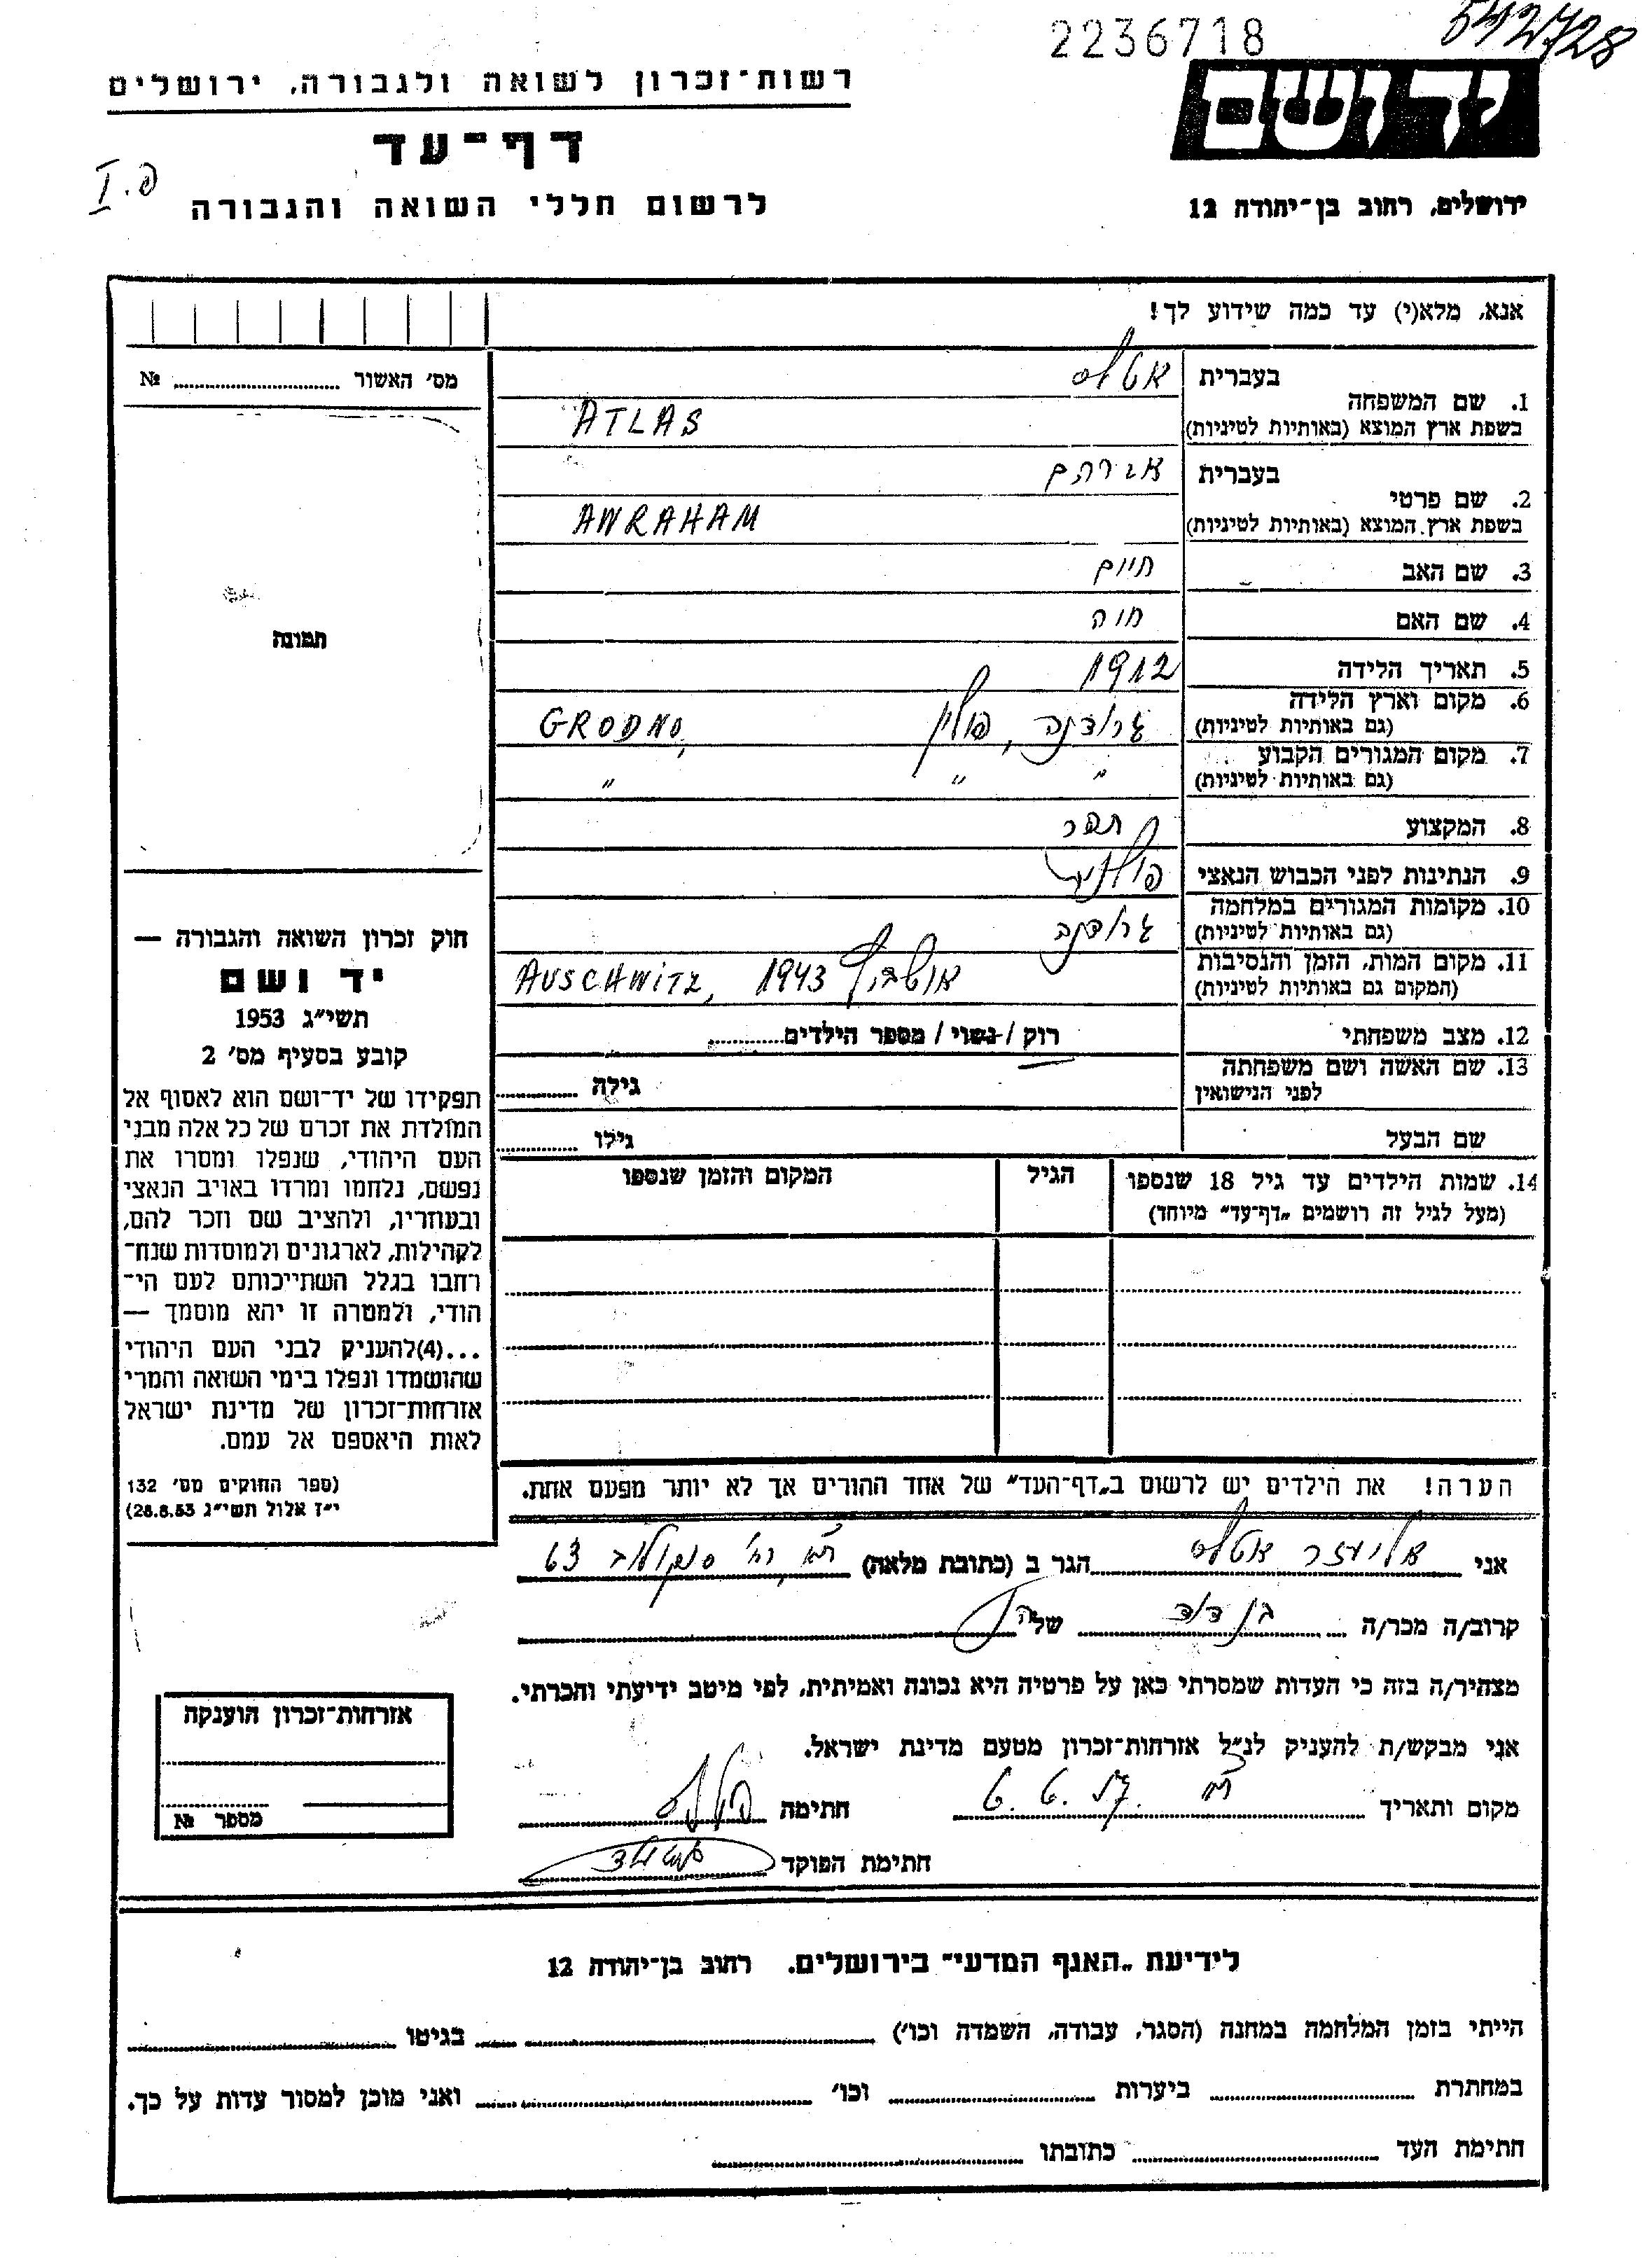 2236718
542728
רשות־זכרון לשואה ולגבורה, ירושלים
דף־עד
לרשום חללי השואה והגבורה
I.פ
יד ושם
ירושלים, רחוב בן־יהודה 12
אנא, מלא(י) עד כמה שידוע לך!
מס׳ האשור № ..........
1. שם המשפחה
בעברית אטלס
בשפת ארץ המוצא (באותיות לטיניות) ATLAS
2. שם פרטי
בעברית אברהם
בשפת ארץ המוצא (באותיות לטיניות) AWRAHAM
3. שם האב חיים
4. שם האם חוה
5. תאריך הלידה 1912
6. מקום וארץ הלידה
(גם באותיות לטיניות) גרודנה, פולין GRODNO,
7. מקום המגורים הקבוע
(גם באותיות לטיניות) " " "
8. המקצוע תפר
9. הנתינות לפני הכבוש הנאצי פולנית
10. מקומות המגורים במלחמה
(גם באותיות לטיניות) גרודנה
11. מקום המות, הזמן והנסיבות
(המקום גם באותיות לטיניות) אושביץ 1943 AUSCHWITZ,
12. מצב משפחתי רוק / נשוי / מספר הילדים..........
13. שם האשה ושם משפחתה
לפני הנישואין גילה ..........
שם הבעל גילו ..........
14. שמות הילדים עד גיל 18 שנספו
(מעל לגיל זה רושמים „דף־עד” מיוחד)
הגיל
המקום והזמן שנספו
הערה! את הילדים יש לרשום ב„דף־העד” של אחד ההורים אך לא יותר מפעם אחת.
תמונה
חוק זכרון השואה והגבורה —
יד ושם
תשי״ג 1953
קובע בסעיף מס׳ 2
תפקידו של יד־ושם הוא לאסוף אל
המולדת את זכרם של כל אלה מבני
העם היהודי, שנפלו ומסרו את
נפשם, נלחמו ומרדו באויב הנאצי
ובעוזריו, ולהציב שם וזכר להם,
לקהילות, לארגונים ולמוסדות שנח־
רבו בגלל השתייכותם לעם הי־
הודי, ולמטרה זו יהא מוסמך —
...(4)להעניק לבני העם היהודי
שהושמדו ונפלו בימי השואה והמרי
אזרחות־זכרון של מדינת ישראל
לאות היאספם אל עמם.
(ספר החוקים מס׳ 132
י״ז אלול תשי״ג 28.8.53)
אני אליעזר אטלס הגר ב (כתובת מלאה) ת״א, רח׳ סוקולוב 63
קרוב/ה מכר/ה בן דוד של הנ״ל
מצהיר/ה בזה כי העדות שמסרתי כאן על פרטיה היא נכונה ואמיתית, לפי מיטב ידיעתי והכרתי.
אני מבקש/ת להעניק לנ״ל אזרחות־זכרון מטעם מדינת ישראל.
מקום ותאריך ת״א חתימה
חתימת הפוקד
אזרחות־זכרון הוענקה
מספר №
לידיעת „האגף המדעי” בירושלים. רחוב בן־יהודה 12
הייתי בזמן המלחמה במחנה (הסגר, עבודה, השמדה וכו׳) .......... בגיטו ..........
במחתרת .......... ביערות .......... וכו׳ .......... ואני מוכן למסור עדות על כך.
חתימת העד .......... כתובתו ..........